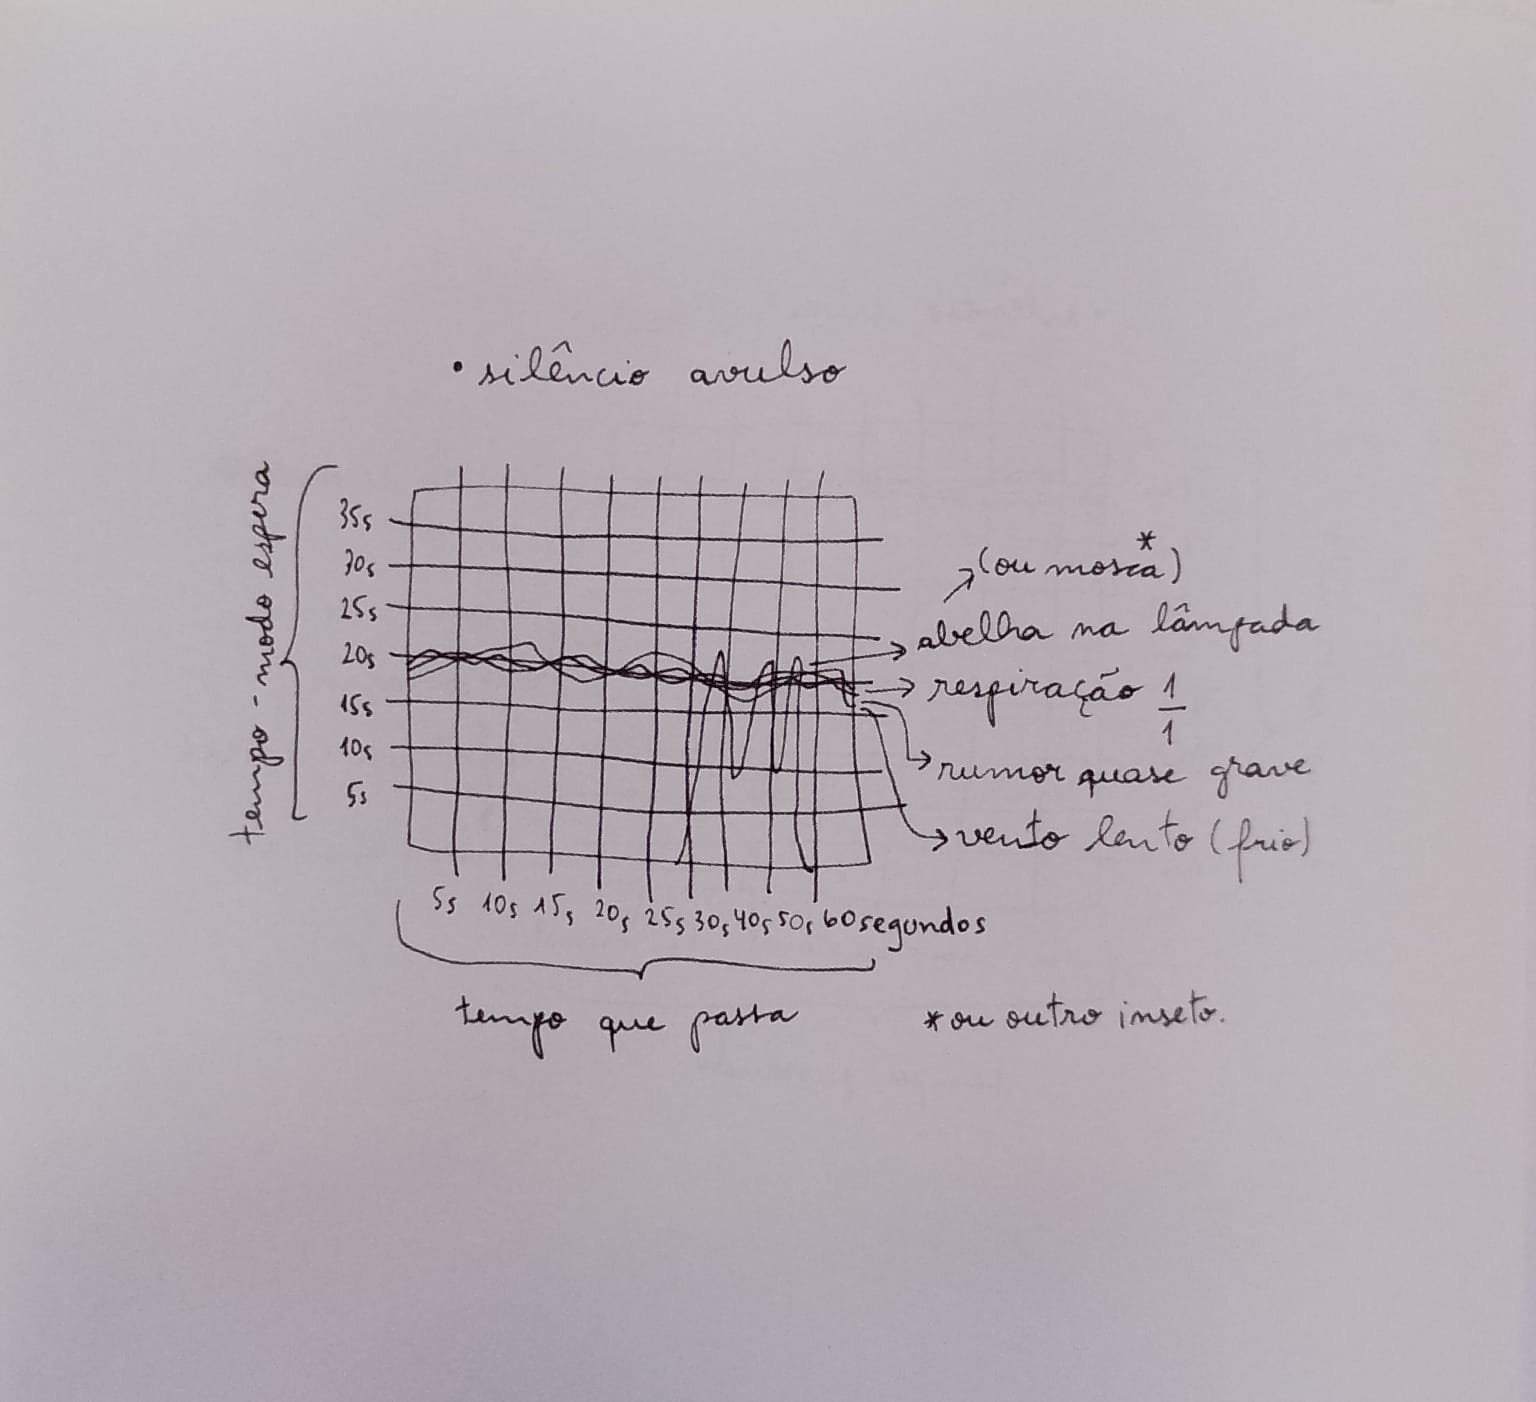 • silêncio avulso
tempo - modo espera
35s
30s
25s
20s
15s
10s
5s
(ou mosca*)
abelha na lâmpada
respiração 1/1
rumor quase grave
vento lento (frio)
5s 10s 15s 20s 25s 30s 40s 50s 60segundos
tempo que passa
*ou outro inseto.